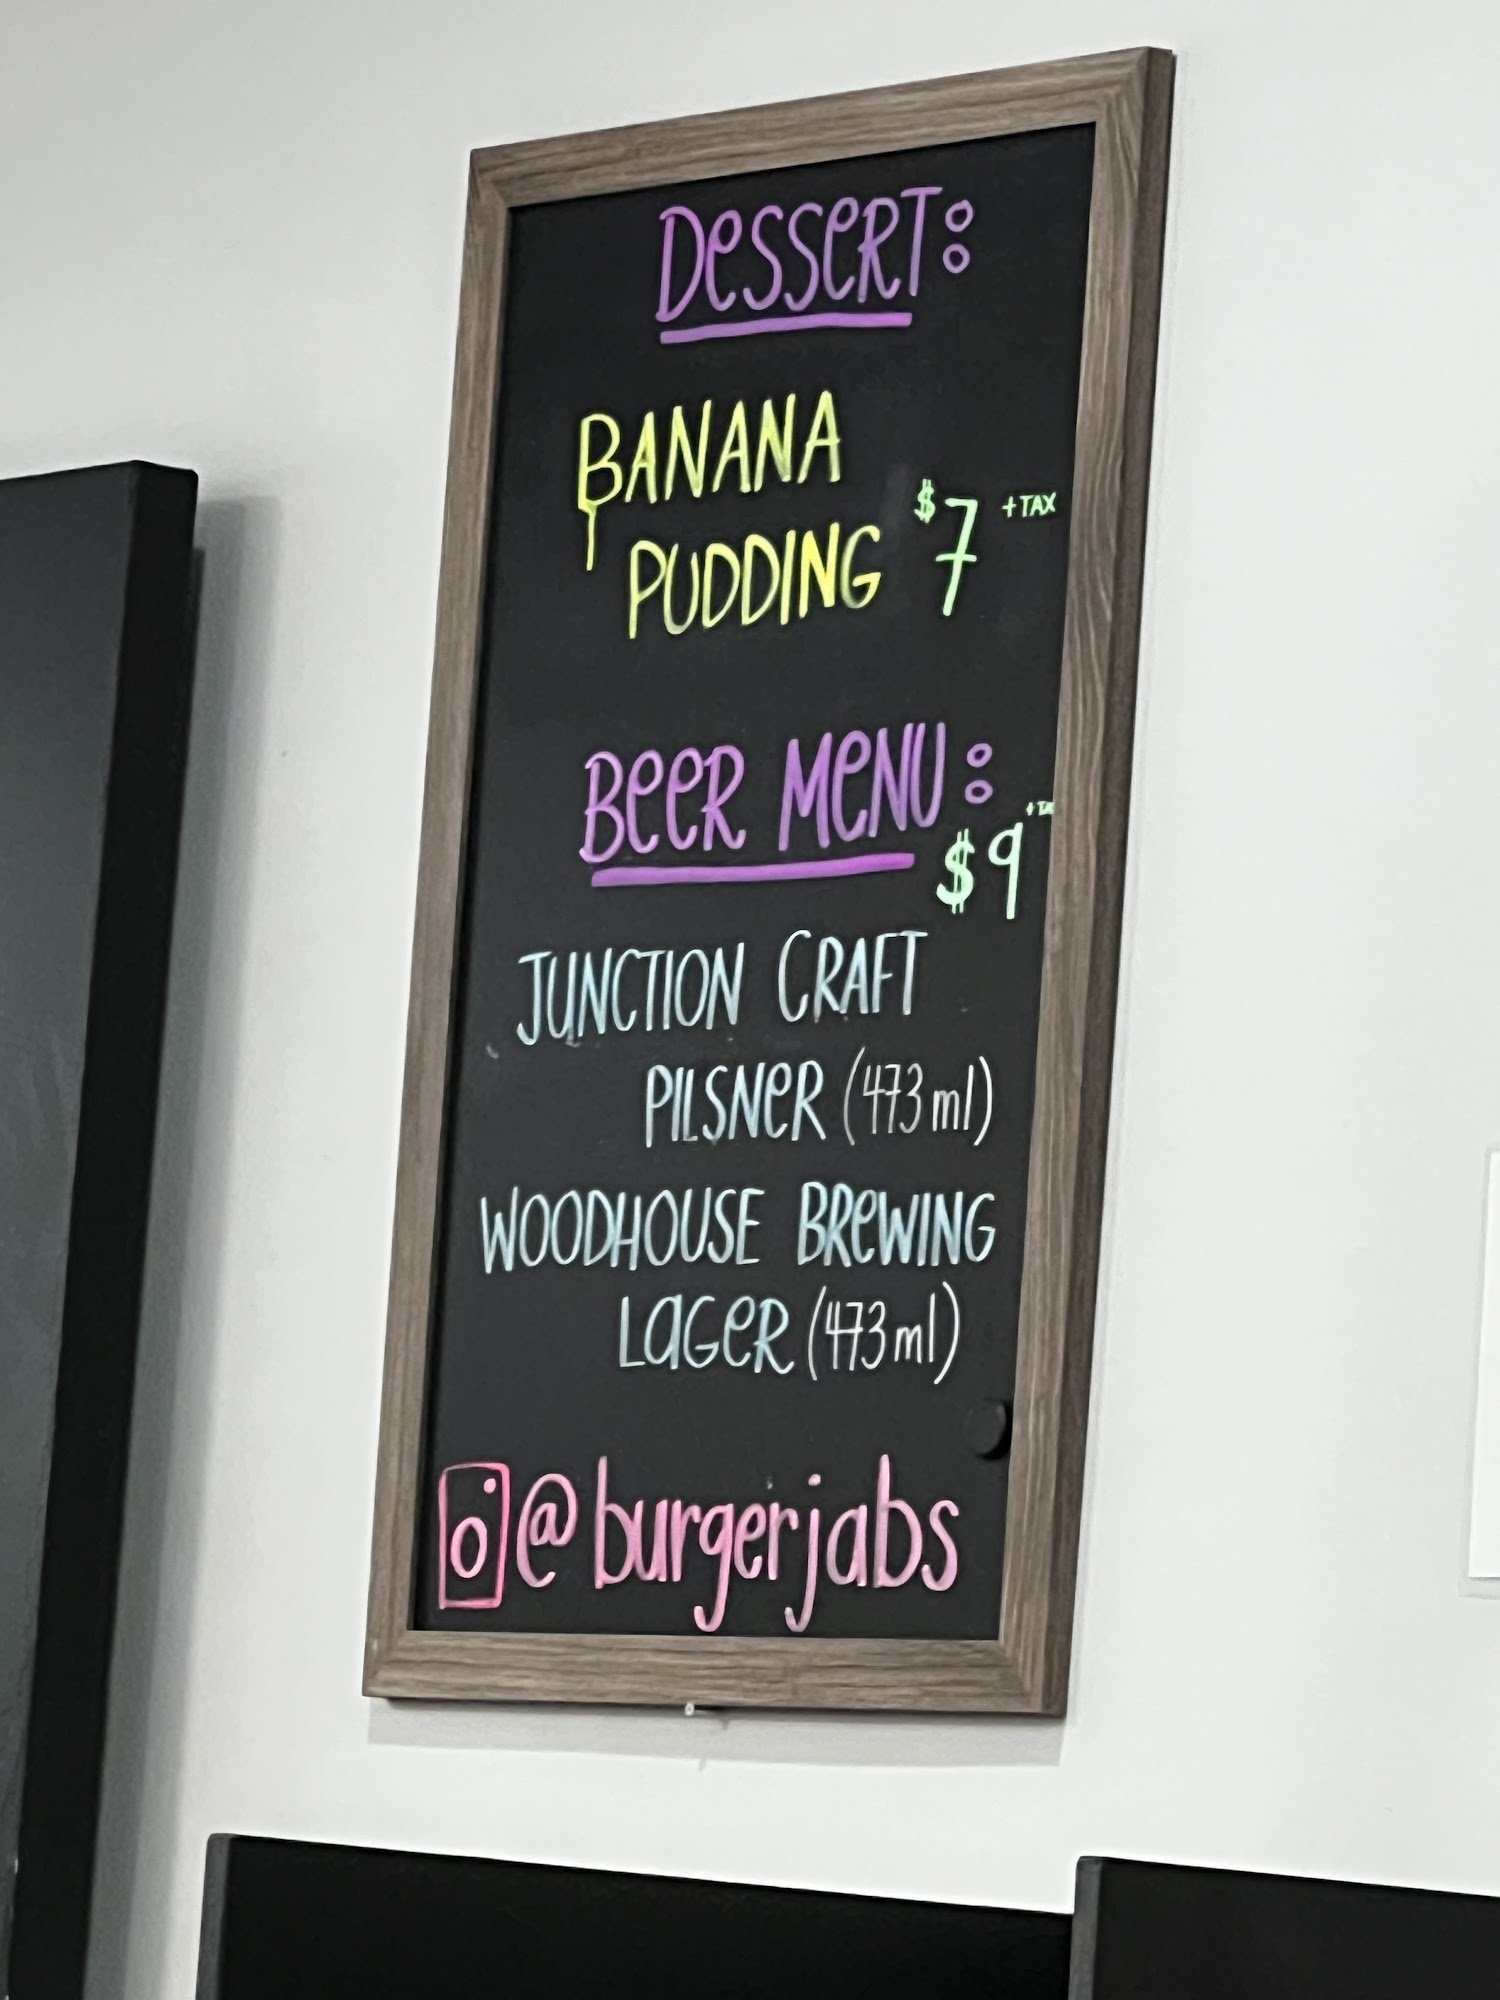 DESSERT:
BANANA
PUDDING $7 +TAX
BEER MENU:
$9
JUNCTION CRAFT
PILSNER (473ml)
WOODHOUSE BREWING
LAGER (473ml)
@burgerjabs